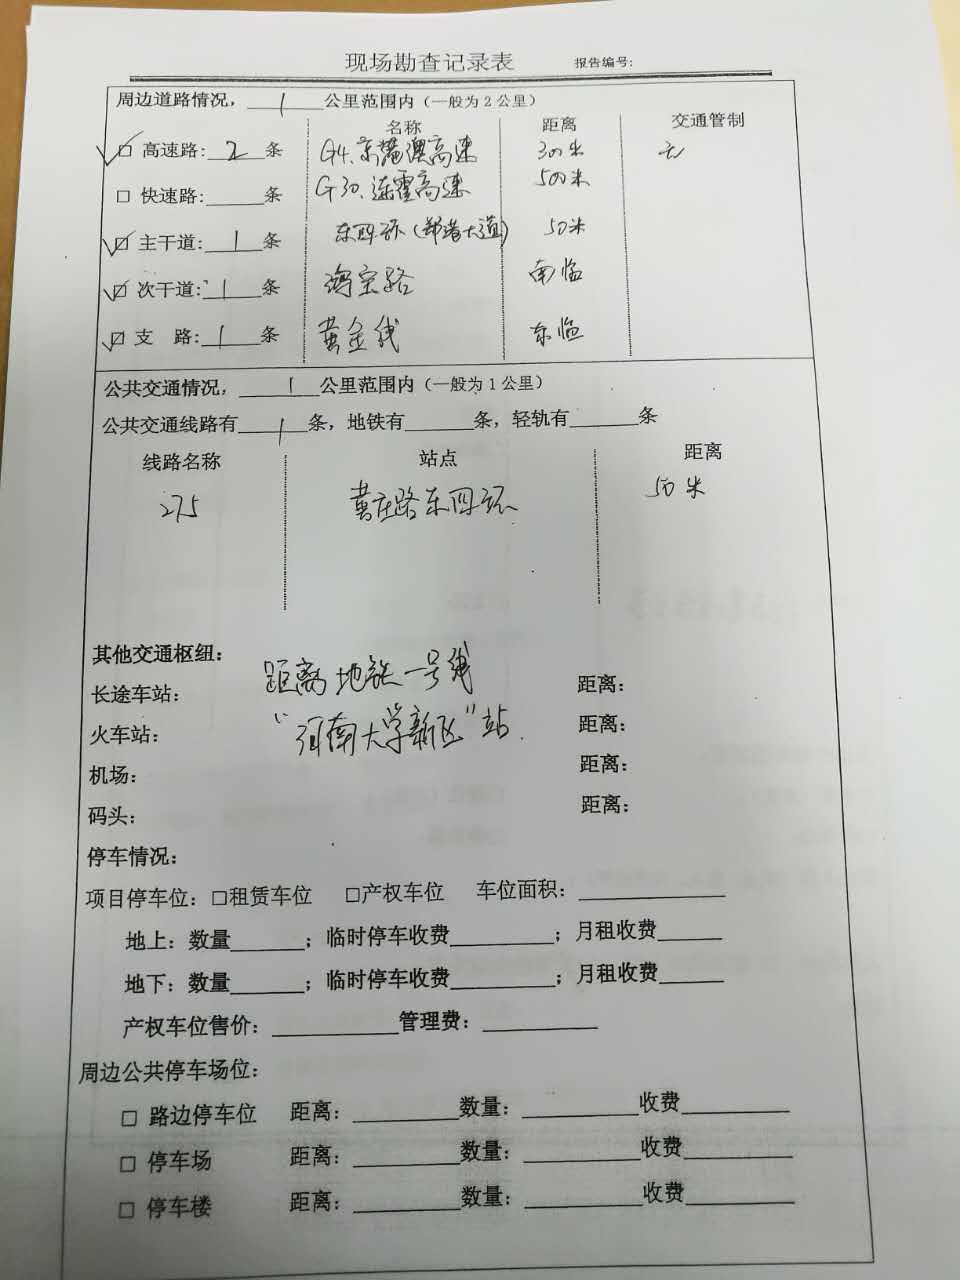 现场勘查记录表 报告编号:
周边道路情况，1公里范围内（一般为2公里）
名称 距离 交通管制
☑ 高速路: 2 条 G4.京港澳高速 300米 无
G30.连霍高速 500米
□ 快速路: 条
☑ 主干道: 1 条 东四环(郑港大道) 50米
☑ 次干道: 1 条 陶宝路 南临
☑ 支 路: 1 条 黄金线 东临
公共交通情况，1公里范围内（一般为1公里）
公共交通线路有 1 条，地铁有 条，轻轨有 条
线路名称 站点 距离
275 黄庄路东四环 50米
其他交通枢纽：
距离地铁一号线
长途车站: 距离:
"河南大学新区"站
火车站: 距离:
机场: 距离:
码头: 距离:
停车情况:
项目停车位: □租赁车位 □产权车位 车位面积:
地上: 数量 ; 临时停车收费 ; 月租收费
地下: 数量 ; 临时停车收费 ; 月租收费
产权车位售价: 管理费:
周边公共停车场位:
□ 路边停车位 距离: 数量: 收费
□ 停车场 距离: 数量: 收费
□ 停车楼 距离: 数量: 收费